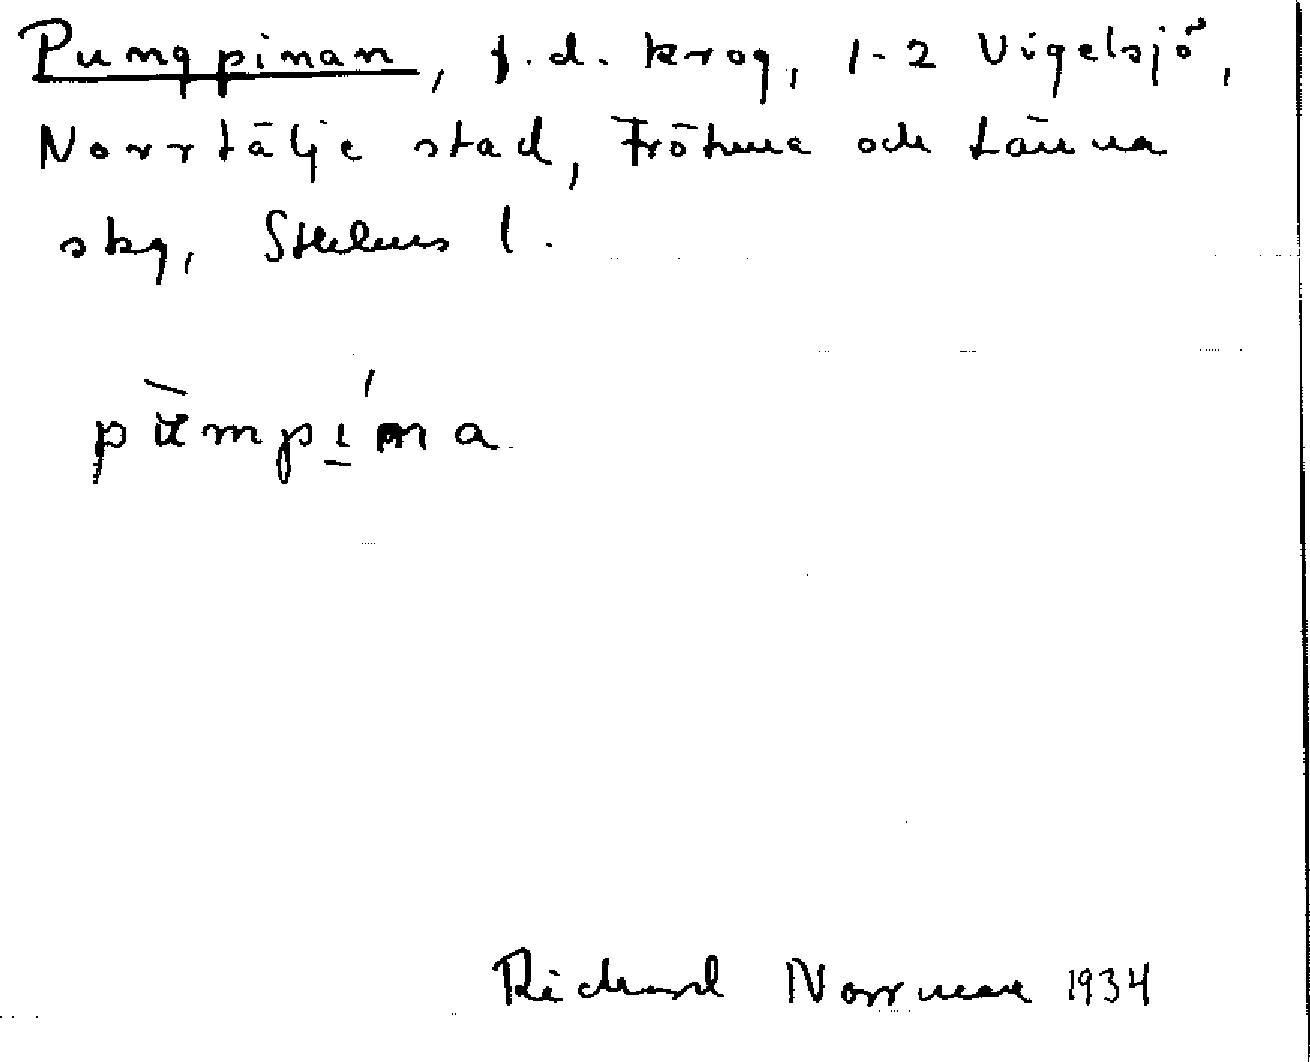 Pungpinan, f.d. krog, 1-2 Vigelsjö,
Norrtälje stad, Frötuna och Länna
skg, Sthlms l.
pùmpína
Richard Norrman 1934